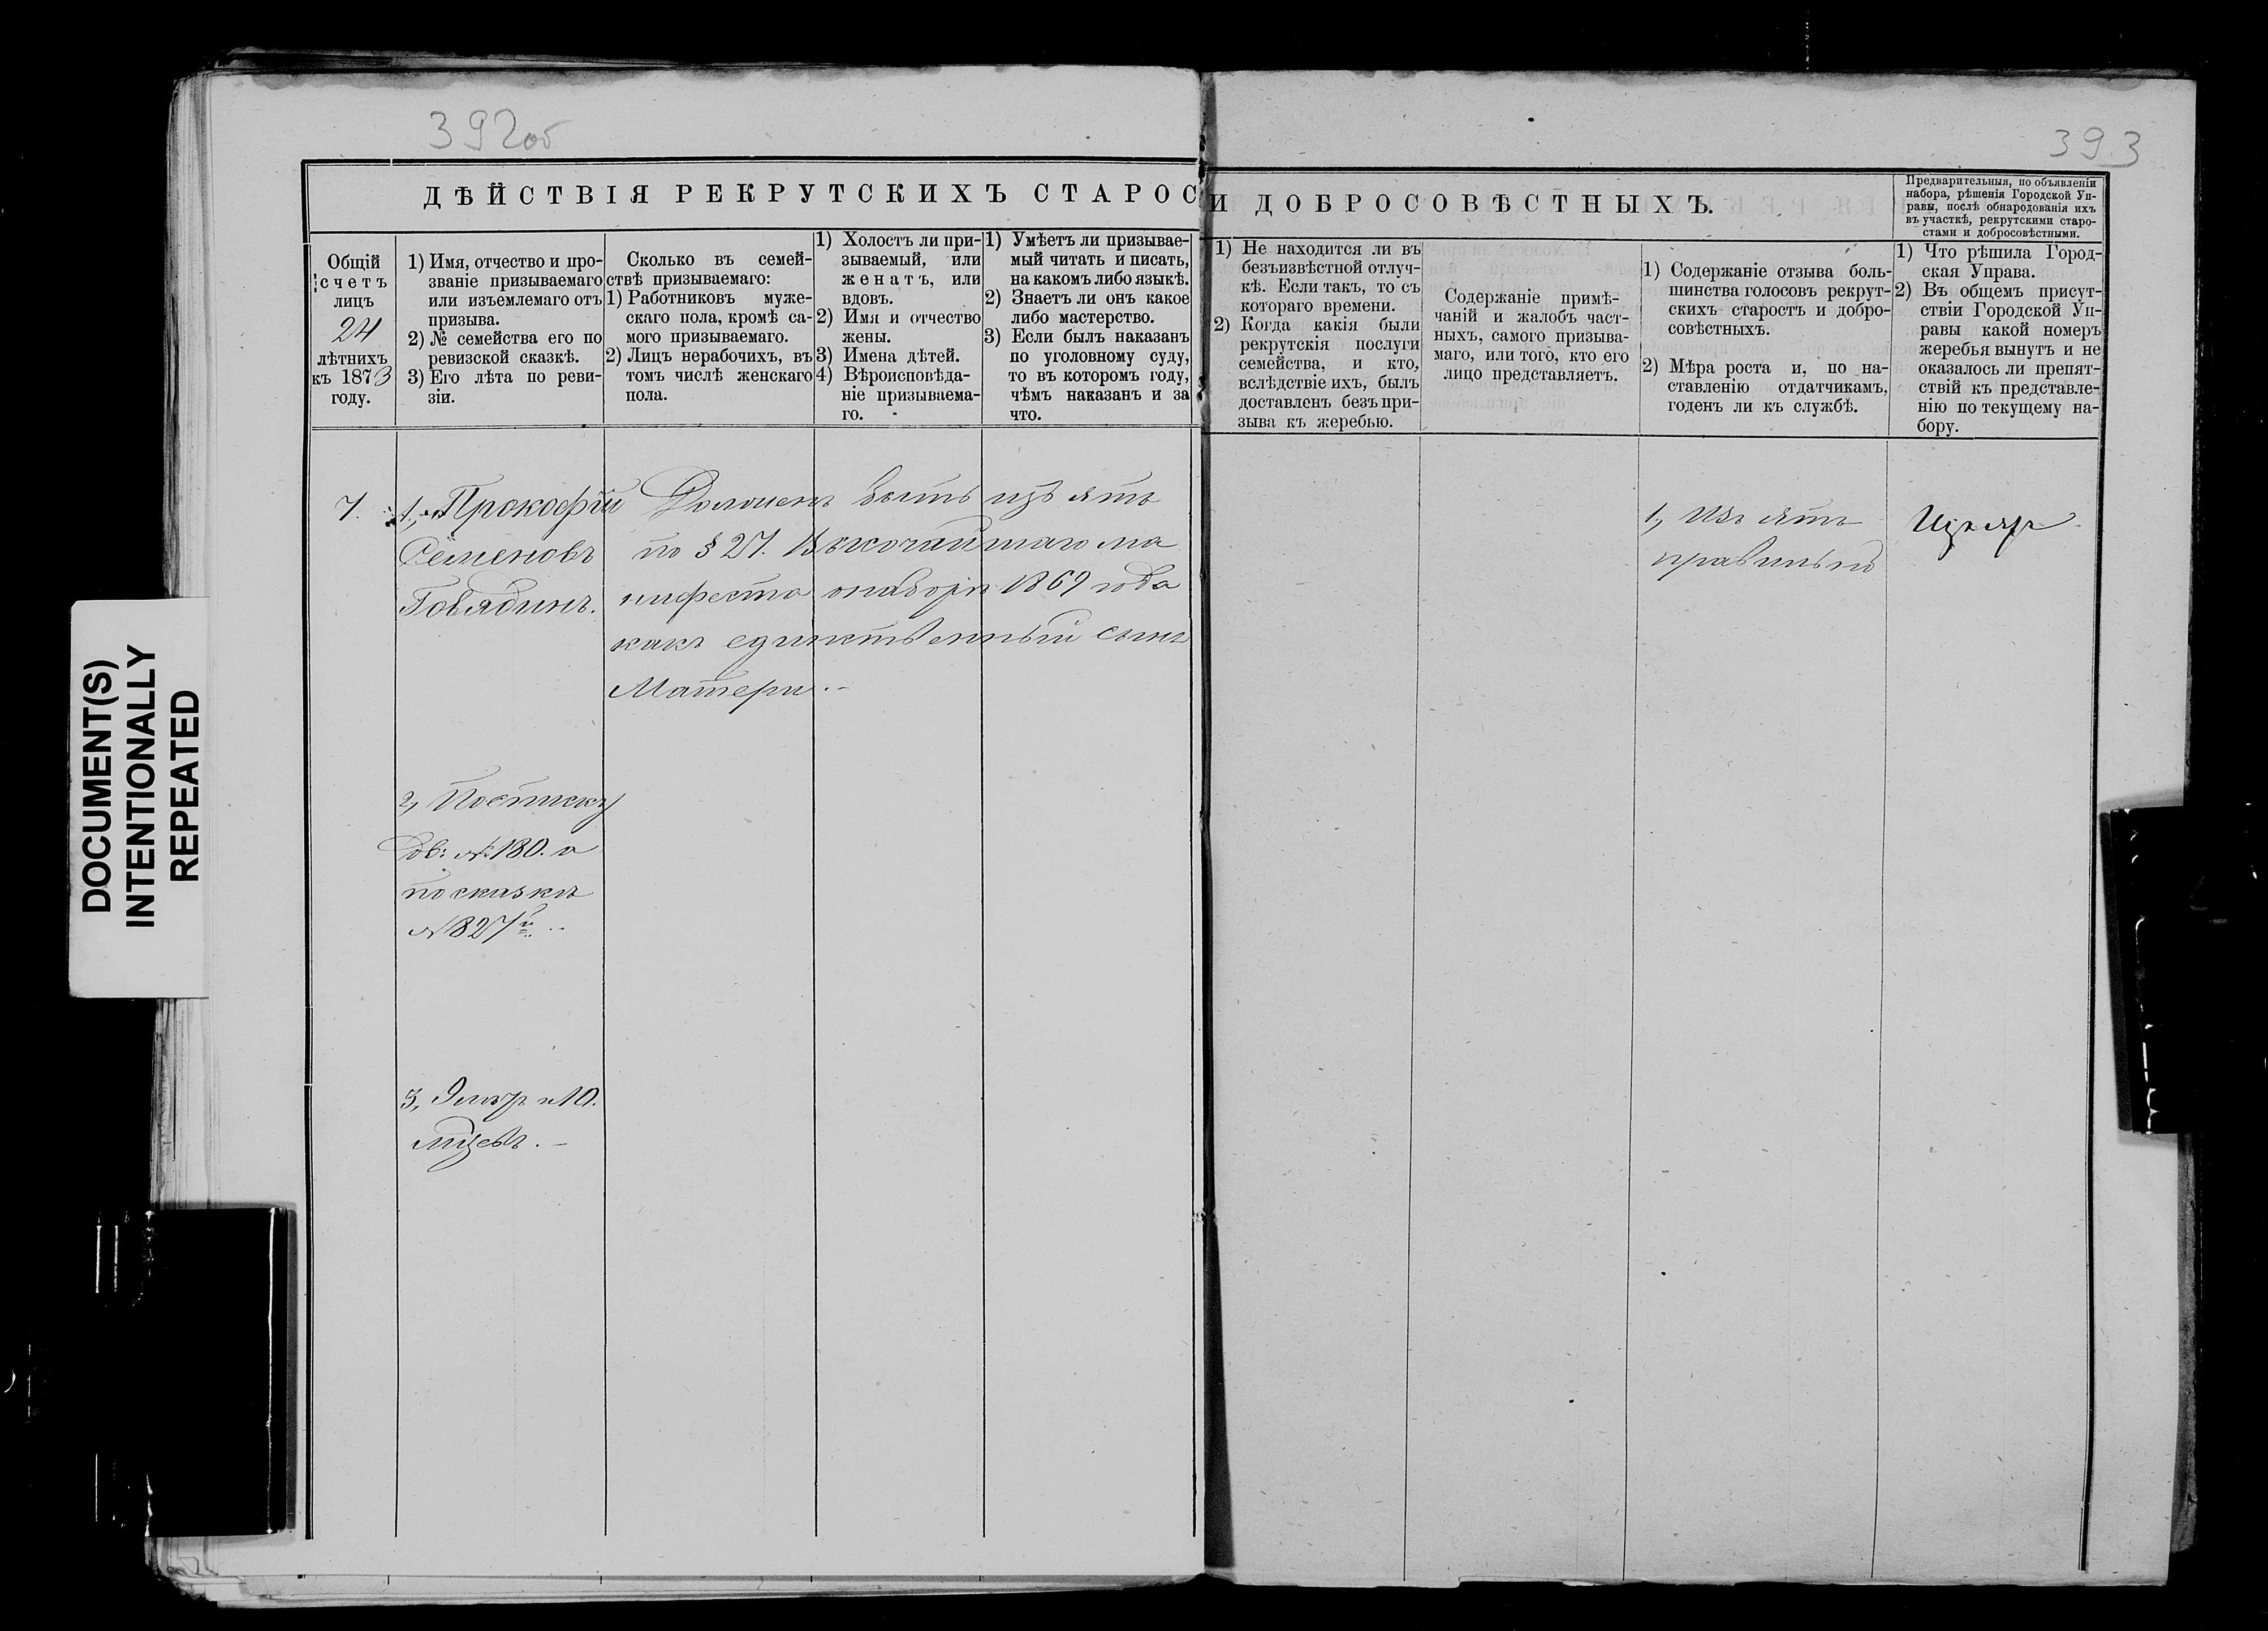 392об
393
ДѢЙСТВІЯ РЕКРУТСКИХЪ СТАРОС
И ДОБРОСОВѢСТНЫХЪ.
Предварительныя, по объявленіи
набора, рѣшенія Городской Уп-
равы, послѣ обнародованія ихъ
въ участкѣ, рекрутскими старо-
стами и добросовѣстными.
Общій
счетъ
лицъ
24
лѣтнихъ
къ 1873
году.
1) Имя, отчество и про-
званіе призываемаго
или изъемлемаго отъ
призыва.
2) № семейства его по
ревизской сказкѣ.
3) Его лѣта по реви-
зіи.
Сколько въ семей-
ствѣ призываемаго:
1) Работниковъ муже-
скаго пола, кромѣ са-
мого призываемаго.
2) Лицъ нерабочихъ, въ
томъ числѣ женскаго
пола.
1) Холостъ ли при-
зываемый, или
женатъ, или
вдовъ.
2) Имя и отчество
жены.
3) Имена дѣтей.
4) Вѣроисповѣда-
ніе призываема-
го.
1) Умѣетъ ли призывае-
мый читать и писать,
на какомъ либо языкѣ.
2) Знаетъ ли онъ какое
либо мастерство.
3) Если былъ наказанъ
по уголовному суду,
то въ которомъ году,
чѣмъ наказанъ и за
что.
1) Не находится ли въ
безъизвѣстной отлуч-
кѣ. Если такъ, то съ
котораго времени.
2) Когда какія были
рекрутскія послуги
семейства, и кто,
вслѣдствіе ихъ, былъ
доставленъ безъ при-
зыва къ жеребью.
Содержаніе примѣ-
чаній и жалобъ част-
ныхъ, самого призыва-
маго, или того, кто его
лицо представляетъ.
1) Содержаніе отзыва боль-
шинства голосовъ рекрут-
скихъ старостъ и добро-
совѣстныхъ.
2) Мѣра роста и, по на-
ставленію отдатчикамъ,
годенъ ли къ службѣ.
1) Что рѣшила Город-
ская Управа.
2) Въ общемъ присут-
ствіи Городской Уп-
равы какой номеръ
жеребья вынутъ и не
оказалось ли препят-
ствій къ представле-
нію по текущему на-
бору.
7.
1., Прокофій
Семеновъ
Говядинъ.
Долженъ быть изъ ятъ
по § 27. Высочайшаго ма
нифеста о наборѣ 1869 года
какъ единственный сынъ
Матери.-
1., Изъ ятъ
правильно
2, По списку
дв: № 180. а
по сказкѣ
№ 827й
3, 9 лѣтъ и 10.
мѣсяц.-
DOCUMENT(S)
INTENTIONALLY
REPEATED